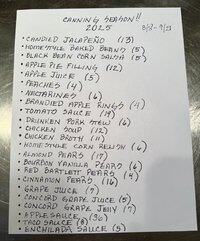 CANNING SEASON!!
2025 8/8 - 9/21
• CANDIED JALAPEÑO (13)
• HOMESTYLE BAKED BEANS (5)
• BLACK BEAN CORN SALSA (5)
• APPLE PIE FILLING (12)
• APPLE JUICE (5)
• PEACHES (4)
• NECTARINES (6)
• BRANDIED APPLE RINGS (4)
• TOMATO SAUCE (19)
• DRUNKEN PORK STEW (6)
• CHICKEN SOUP (12)
• CHICKEN BROTH (11)
• HOMESTYLE CORN RELISH (6)
• ALMOND PEARS (17)
• BOURBON VANILLA PEARS (6)
• RED BARTLETT PEARS (4)
• CINNAMON PEARS (16)
• GRAPE JUICE (7)
• CONCORD GRAPE JUICE (5)
• CONCORD GRAPE JELLY (17)
• APPLE SAUCE (36)
• TACO SAUCE (8)
• ENCHILADA SAUCE (5)